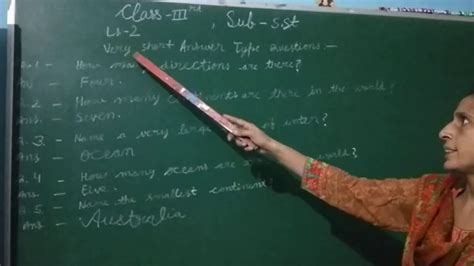 Class-IIIrd, Sub-S.St
Ls-2
Very short Answer Type Questions—
Q.1 - How many directions are there?
Ans - Four.
Q.2 - How many continents are there in the world?
Ans - Seven.
Q.3. Name a very large of water?
Ans - Ocean
Q.4 - How many oceans are world?
Ans. - Five.
Q.5 - Name the smallest continent
Ans - Australia